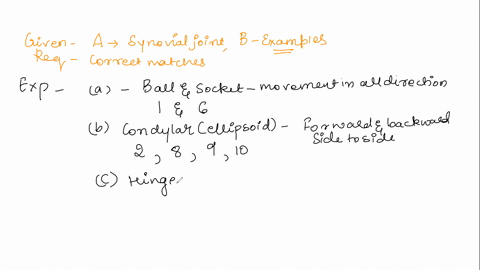 Given - A → Synovial joint, B - Examples
Req - Correct matches
Exp - (a) - Ball & Socket - movement in all direction
1 & 6
(b) Condylar (ellipsoid) - Forward & backward
Side to side
2, 8, 9, 10
(c) Hinge